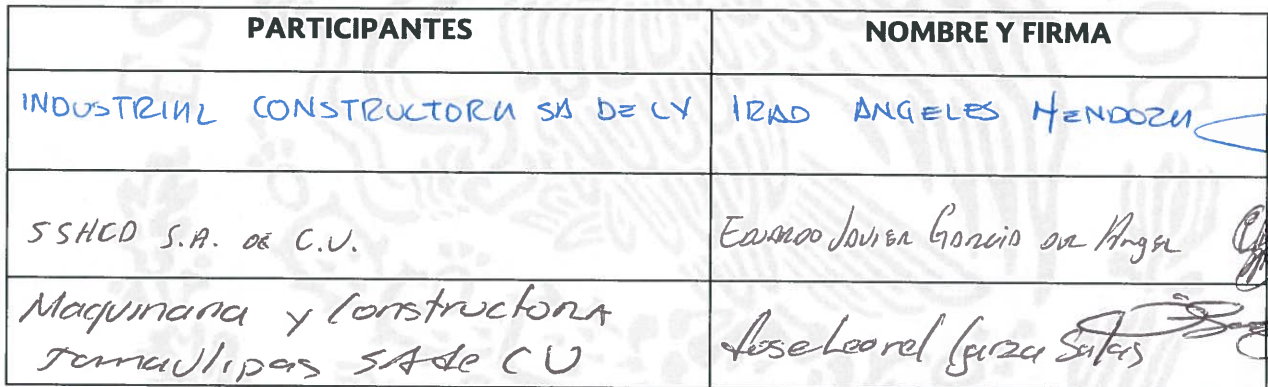 PARTICIPANTES
NOMBRE Y FIRMA
INDUSTRIAL CONSTRUCTORA SA DE CV
IRAD ANGELES MENDOZA
SSHCD S.A. DE C.V.
EDUARDO JAVIER GARCIA DEL Angel
Maquinaria y Constructora
Tamaulipas SA de CV
Jose Leonel Garza Salas